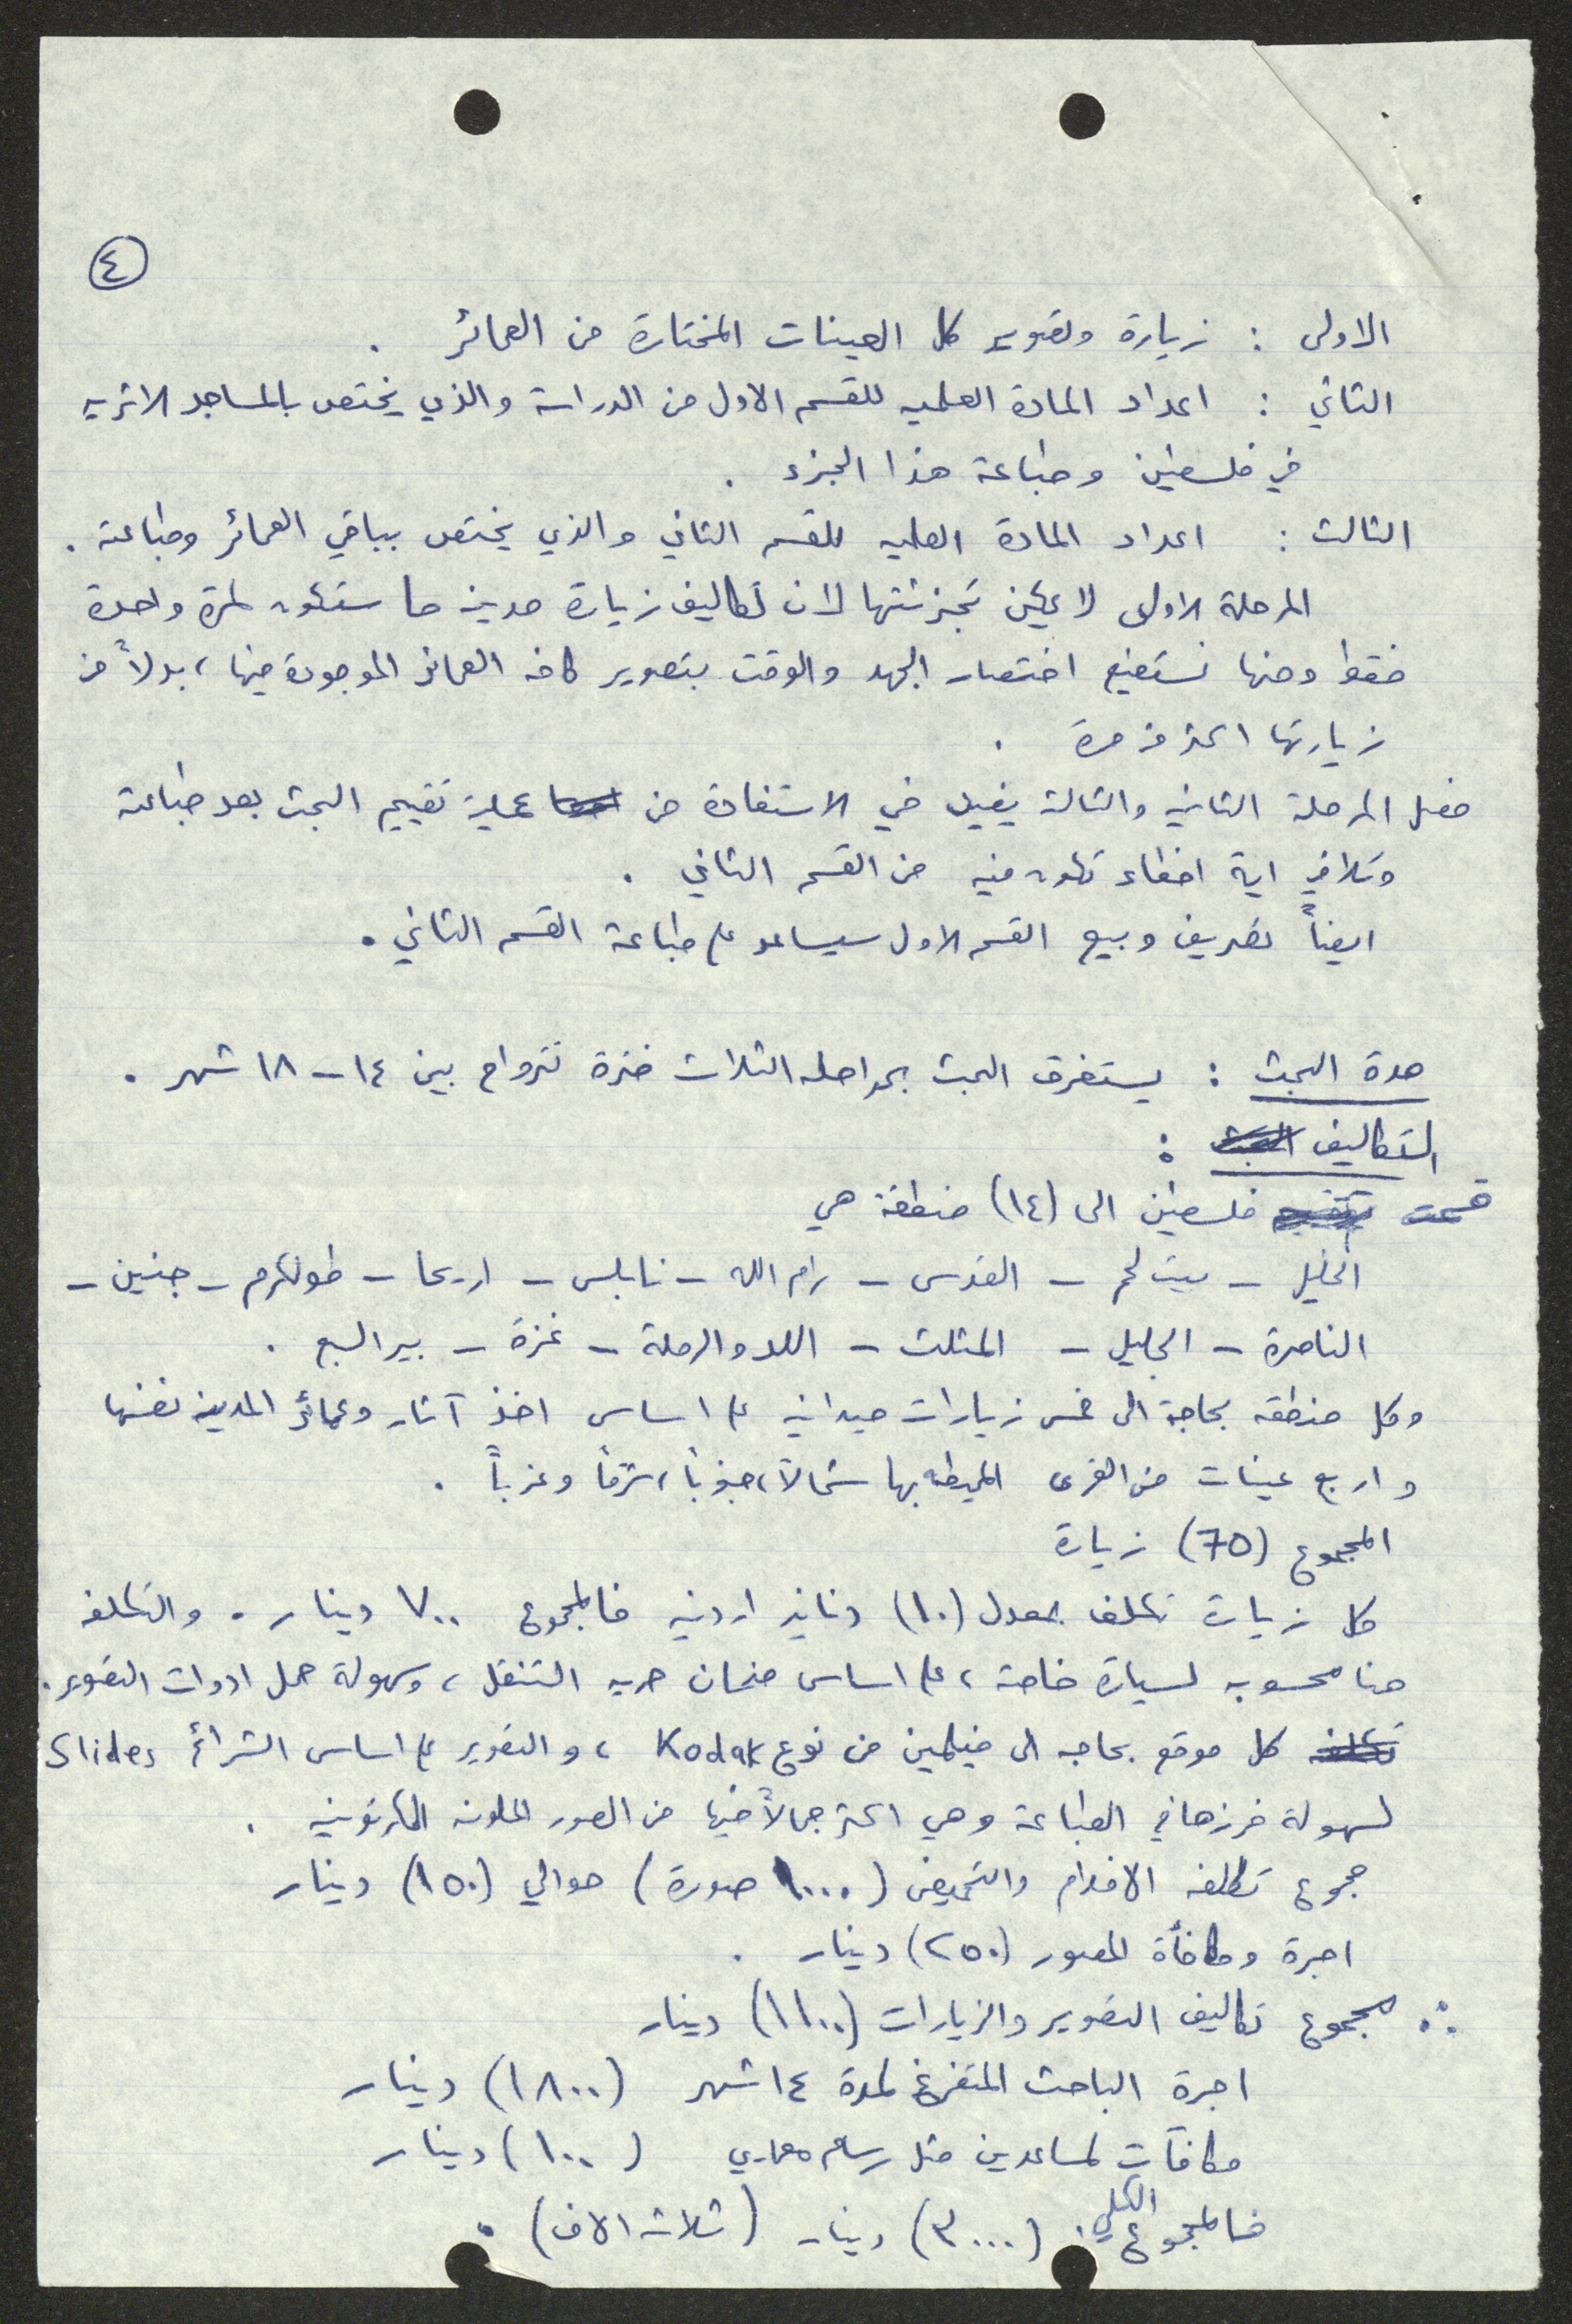 ٤
الاولى : زيارة وتصوير كل العينات المختارة من العمائر .
الثاني : اعداد المادة العلميه للقسم الاول من الدراسة والذي يختص بالمساجد الاثريه
في فلسطين وطباعة هذا الجزء .
الثالث : اعداد المادة العلميه للقسم الثاني والذي يختص بباقي العمائر وطباعته .
المرحلة الاولى لا يمكن تجزئتها لان تكاليف زيارة مدينه ما ستكون لمرة واحدة
فقط ومنها نستطيع اختصار الجهد والوقت بتصوير كافه العمائر الموجودة فيها ، بدلاً من
زيارتها اكثر من مرة .
فصل المرحلة الثانيه والثالثة يفيد في الاستفادة من عملية تقييم البحث بعد طباعته
وتلافي اية اخطاء تكون فيه من القسم الثاني .
ايضاً تصريف وبيع القسم الاول سيساعد على طباعة القسم الثاني .
مدة البحث : يستغرق البحث بمراحله الثلاث فترة تترواح بين ١٤ - ١٨ شهر .
التكاليف :
قسمت فلسطين الى (١٤) منطقة هي
الخليل - بيت لحم - القدس - رام الله - نابلس - اريحا - طولكرم - جنين -
الناصرة - الجليل - المثلث - اللد والرملة - غزة - بير السبع .
وكل منطقه بحاجة الى خمس زيارات ميدانيه على اساس اخذ آثار وعمائر المدينه نفسها
واربع عينات من القرى المحيطه بها شمالاً ، جنوباً ، شرقاً وغرباً .
المجموع (70) زيارة
كل زيارة تكلف بمعدل (١٠) دنانير اردنيه فالمجموع ٧٠٠ دينار . والتكلفه
هنا محسوبه لسيارة خاصة ، على اساس ضمان حريه التنقل ، وسهولة حمل ادوات التصوير .
كل موقع بحاجه الى فيلمين من نوع Kodak ، والتصوير على اساس الشرائح Slides
لسهولة فرزها في الطباعة وهي اكثر جمالاً فنيا من الصور الملونه الكارتونيه .
مجموع تكلفه الافلام والتحميض (١٠٠٠ صورة) حوالي (١٥٠) دينار
اجرة ومكافأة للمصور (٢٥٠) دينار .
∴ مجموع تكاليف التصوير والزيارات (١١٠٠) دينار
اجرة الباحث المتفرغ لمدة ١٤ شهر (١٨٠٠) دينار
مكافآت لمساعدين مثل رسام معماري (١٠٠) دينار
فالمجموع الكلي (٣٠٠٠) دينار (ثلاثه الاف) .